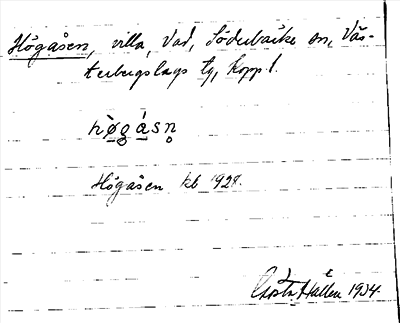 Högåsen, villa, Vad, Söderbärke sn, Väs-
terbergslags tg, Kopp. l.
hø̀gásn̥
Högåsen kb 1928.
Gösta Hallen 1934